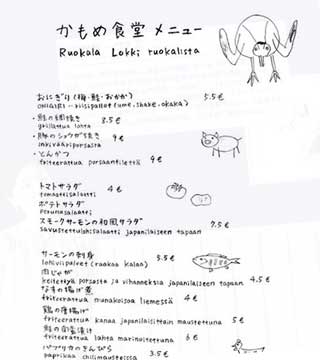 かもめ食堂 メニュー
Ruokala Lokki ruokalista
おにぎり (梅・鮭・おかか) 5.5€
ONIGIRI – riisipallot (ume, shake, okaka)
・鮭の網焼き 8.5€
grillattua lohta
・豚のショウガ焼き 9€
inkivääriporsasta
・とんかつ
friteerattua porsaanfilettä 9€
トマトサラダ 4€
tomaattisalaatti
ポテトサラダ
perunasalaatti
スモークサーモンの和風サラダ 7.5€
savustettulohisalaatti japanilaiseen tapaan
サーモンの刺身 5.5€
lohiviipaleet (raakaa kalaa)
肉じゃが
keitettyä porsasta ja vihanneksia japanilaiseen tapaan 4.5€
なすの揚げ煮
friteerattua munakoisoa liemessä 4€
鶏の唐揚げ
friteerattua kanaa japanilaisittain maustettuna 5€
鮭の南蛮漬け
friteerattua lohta marinoitettuna 6€
パプリカのきんぴら
paprikaa chilimausteissa 3.5€